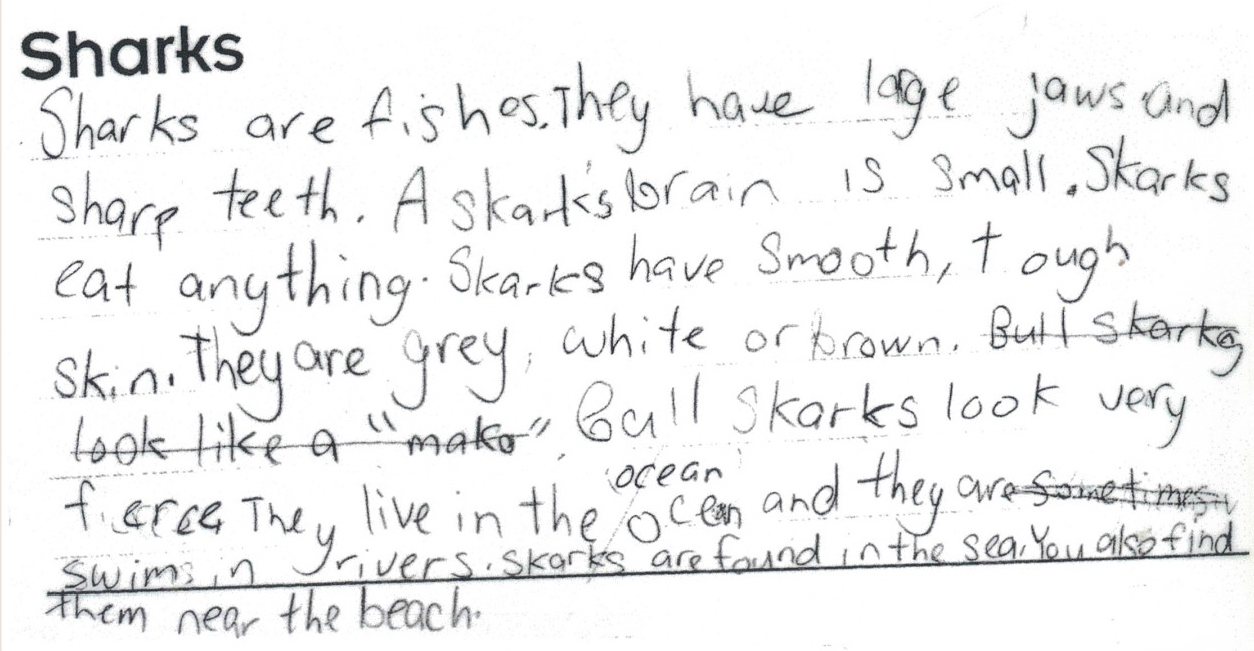 Sharks
Sharks are fishes. They have large jaws and
sharp teeth. A skark's brain is small. Skarks
eat anything. Skarks have smooth, tough
skin. They are grey, white or brown. Bull skarks
look like a "mako". Bull Skarks look very
fierce They live in the ocean ocean and they are sometimes
swims in rivers. skarks are found in the sea. You also find
them near the beach.